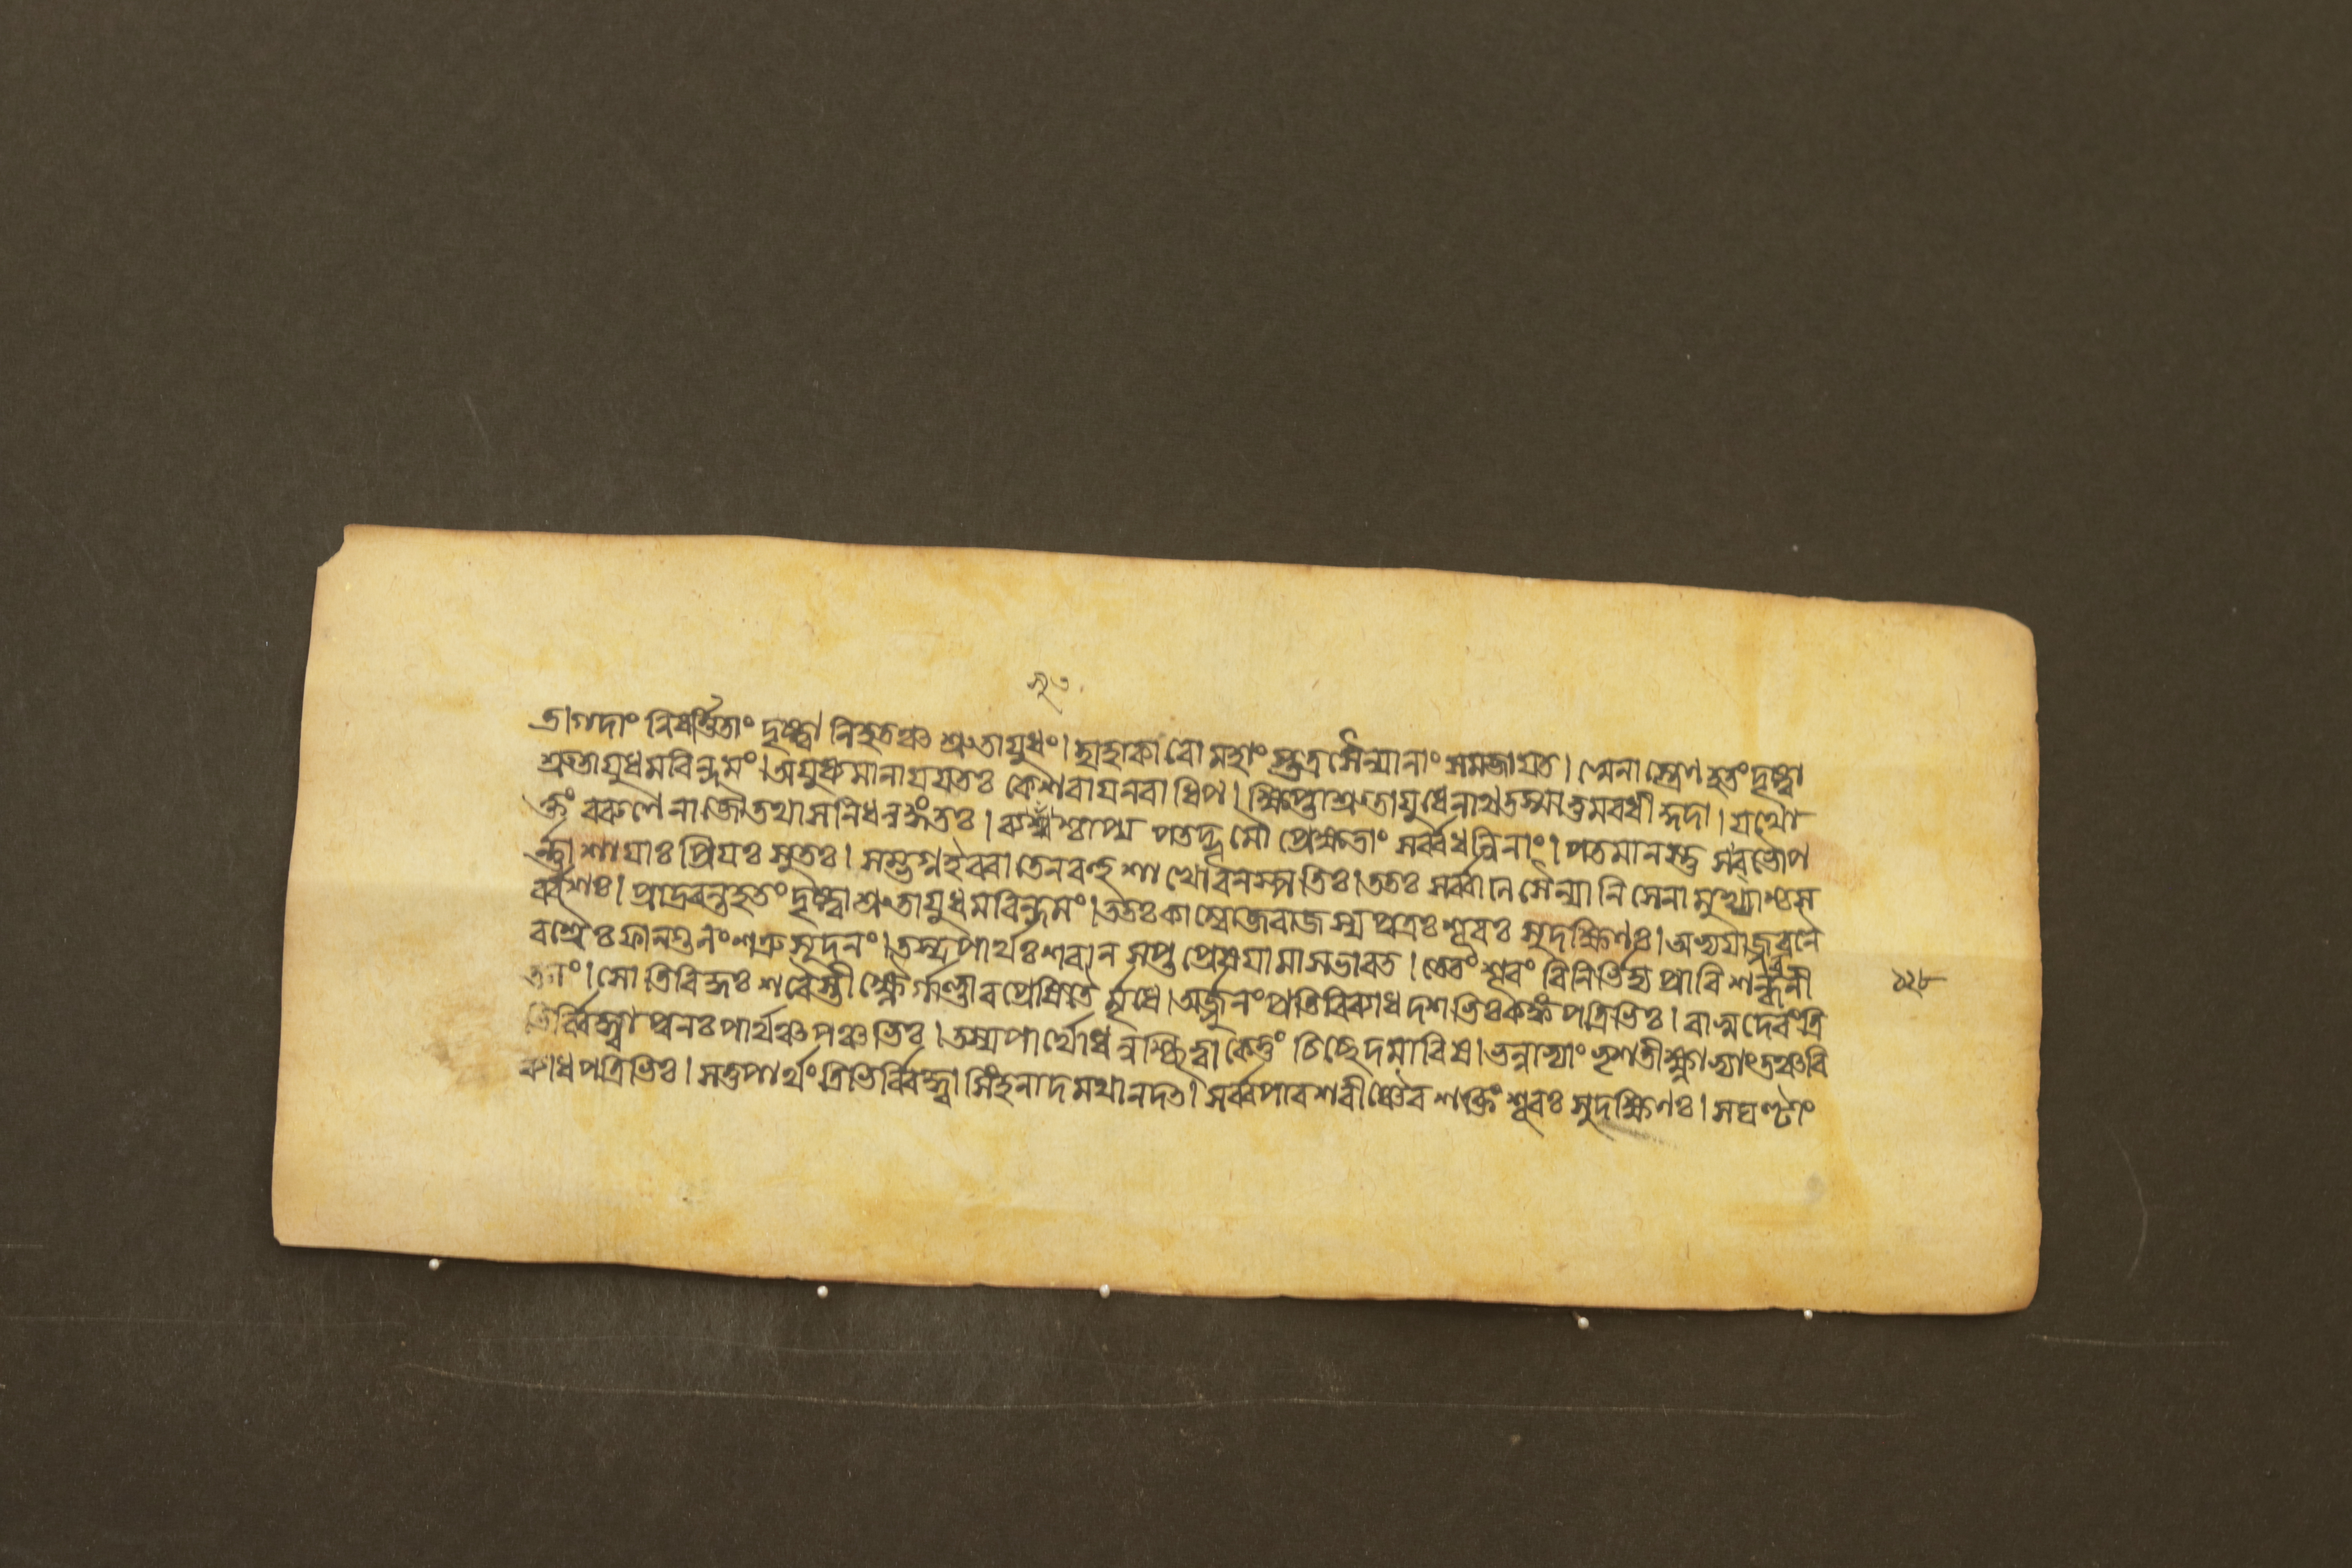 ভাগদাং নিবর্ত্তিতাং দৃষ্ট্বা নিহতঞ্চ শ্রুতায়ুধং। হাহাকারো মহাংস্তত্র সৈন্যানাং সমজায়ত। স্বেনাস্ত্রেণ হতং দৃষ্ট্বা
শ্রুতায়ুধমরিন্দমং। অযুধ্যমানায় যতঃ কেশবায় নরাধিপ। ক্ষিপ্তা শ্রুতায়ুধেনাথ তস্মাত্তমবধীদ্গদা। যথো
ক্তং বরুণেনাজৌ তথা স নিধনঙ্গতঃ। ব্যসুশ্চাপ্যপতদ্ভূমৌ প্রেক্ষতাং সর্ব্বধন্বিনাং। পতমানস্তু স বভৌ প
র্ণ্ণাশায়াঃ প্রিয়ঃ সুতঃ। সম্ভগ্ন ইব বাতেন বহুশাখো বনস্পতিঃ। ততঃ সর্ব্বাণি সৈন্যানি সেনামুখ্যাশ্চ স
র্ব্বশঃ। প্রাদ্রবন্ত হতং দৃষ্ট্বা শ্রুতায়ুধমরিন্দমং। ততঃ কাম্বোজরাজস্য পুত্রঃ শূরঃ সুদক্ষিণঃ। অভ্যয়াজ্জবনৈ
রশ্বৈঃ ফাল্গুনং শত্রুসূদনং। তস্য পার্থঃ শরান্ সপ্ত প্রেষয়ামাস ভারত। তে তং শূরং বিনির্ভিদ্য প্রাবিশন্ধরণী
তলং। সোতিবিদ্ধঃ শরৈস্তীক্ষ্ণৈর্গাণ্ডীবপ্রেষিতৈর্মৃধে। অর্জুনং প্রতিবিব্যাধ দশভিঃ কঙ্কপত্রিভিঃ। বাসুদেবং ত্রি
ভির্ব্বিদ্ধ্বা পুনঃ পার্থঞ্চ পঞ্চভিঃ। তস্য পার্থো ধনুশ্ছিত্বা কেতুং চিচ্ছেদ মারিষ। ভল্লাভ্যাং ভৃশতীক্ষ্ণাভ্যাং তঞ্চ বি
ব্যাধ পত্রিভিঃ। স তু পার্থং ত্রিভির্ব্বিদ্ধ্বা সিংহনাদমথানদত্। সর্ব্বপারশবীঞ্চৈব শক্তিং শূরঃ সুদক্ষিণঃ। সঘণ্টাং
১২৮